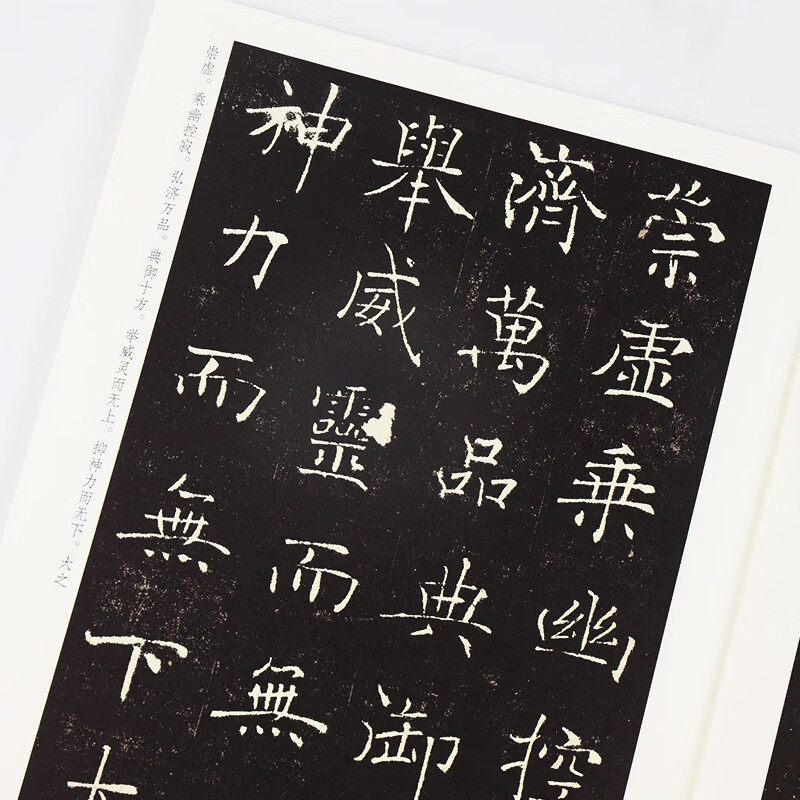 崇虚乘幽控
濟萬品典御
舉威靈而無
神力而無下大
崇虚。乘幽控寂。弘济万品。典御十方。举威灵而无上。抑神力而无下。大之